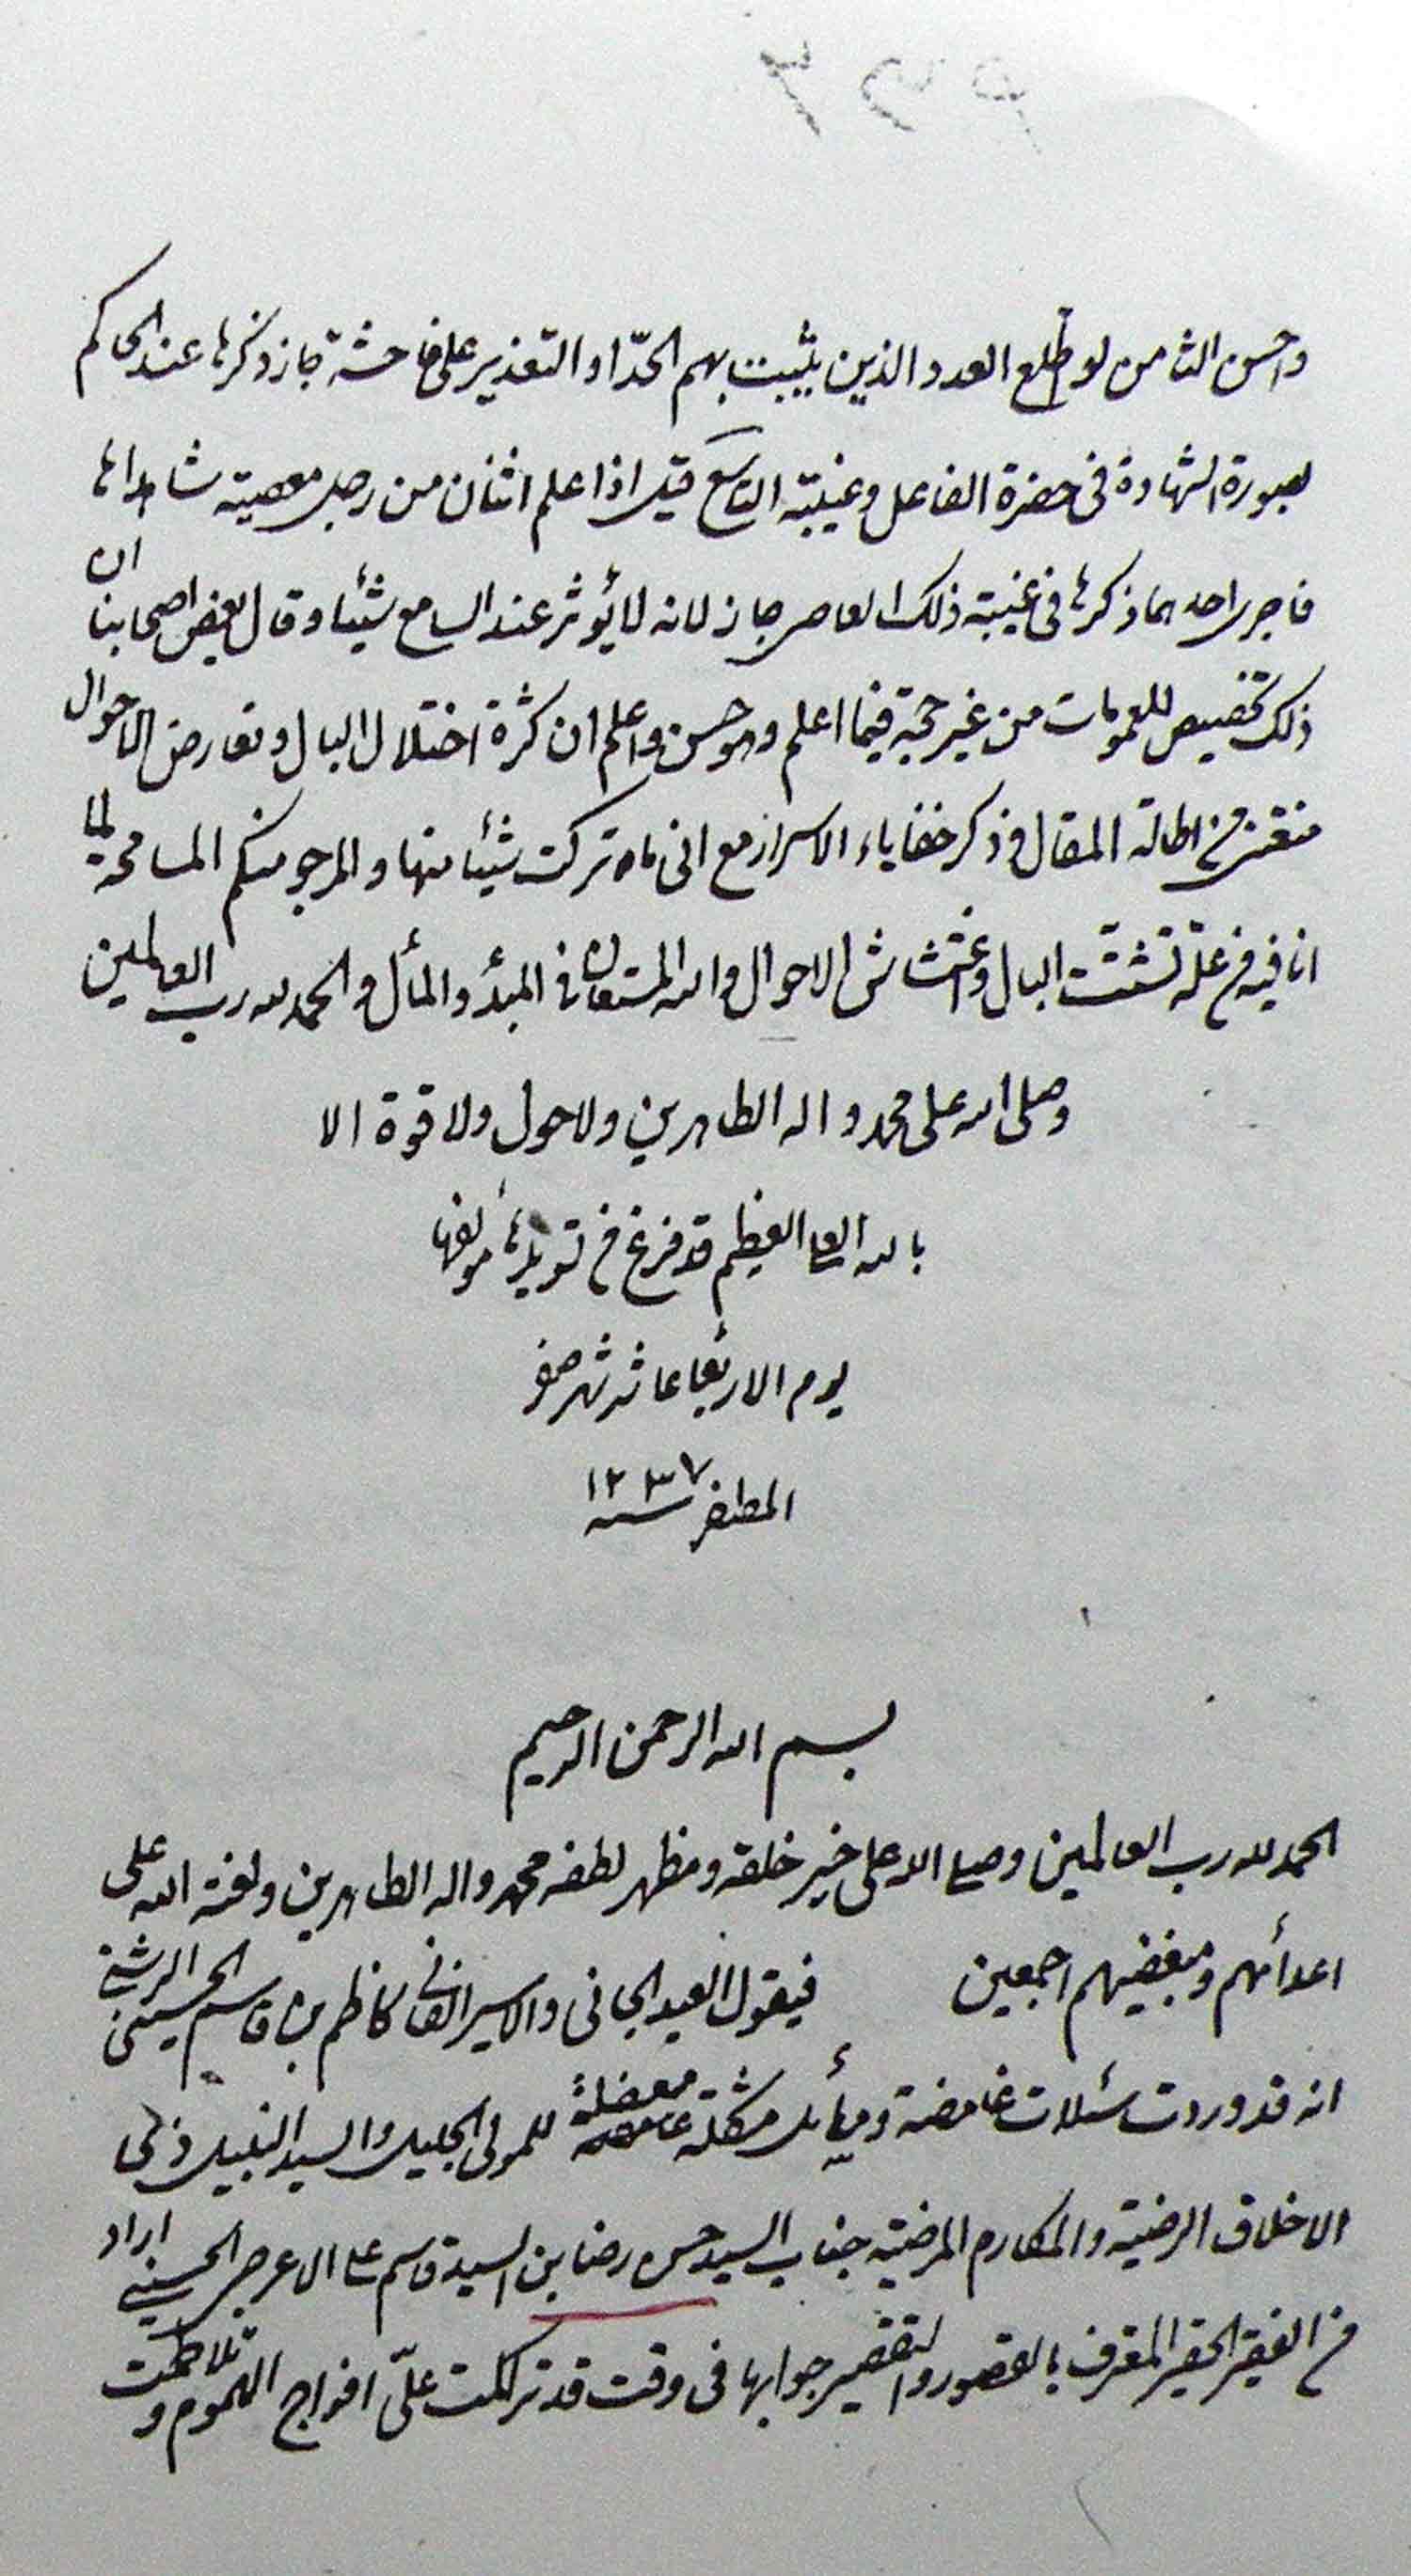 واحسن الثامن لو اطلع العدد الذين يثبت بهم الحدّ او التعذير على فاحشة جاز ذكرها عند الحاكم
بصورة الشهادة فى حضرة الفاعل وغيبته التاسع قيل اذا علم اثنان من رجل معصيته شاهداها
فاجرى احدهما ذكرها فى غيبته ذلك العاصى جاز لانه لا يؤثر عند السامع شيئا وقال بعض اصحابنا ان
ذلك تخصيص للعمومات من غير حجة فيما اعلم وهو حسن واعلم ان كثرة اختلال البال وتعارض الاحوال
منعتنى من اطالة المقال وذكر خفاياء الاسرار مع انى ما تركت شيئا منها والمرجو منكم المسامحة لما
انا فيه من علة تشتت البال واغتشاش الاحوال والله المستعان فى المبدأ والمأل والحمد لله رب العالمين
وصلى الله على محمد واله الطاهرين ولا حول ولا قوة الا
بالله العلى العظيم قد فرغ من تويدها مؤلفها
يوم الاربعا عاشر شهر صفر
المظفر سنه ١٢٣٧
بسم الله الرحمن الرحيم
الحمد لله رب العالمين وصلى الله على خير خلقه ومظهر لطفه محمد واله الطاهرين ولعنة الله على
اعدائهم ومبغضيهم اجمعين فيقول العبد الجانى والاسير الفانى كاظم بن قاسم الحسينى الرشتى
انه قد وردت سئلات غامضة ومسائل مشكلة معضلة للمولى الجليل والسيد النبيل ذى
الاخلاق الرضية والمكارم المرضية جناب السيد حسن رضا بن السيد قاسم على الاعرجى الحسينى اراد
من الفقير الحقير المقرف بالقصور والتقصير جوابها فى وقت قد تراكمت علىّ افواج الهموم و تلاطمت